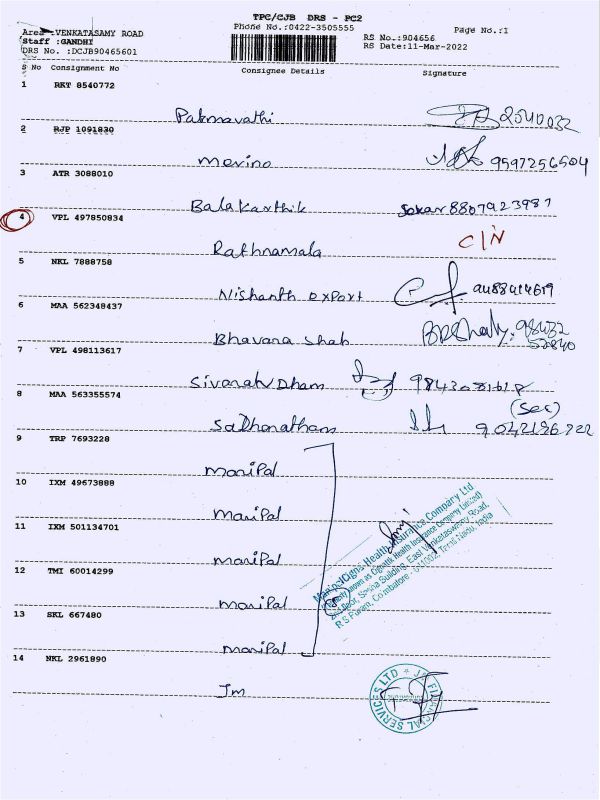 TPC/CJB DRS - PC2
Area :VENKATASAMY ROAD
Phone No.:0422-3505555
Page No.:1
Staff :GANDHI
RS No.:904656
DRS No. :DCJB90465601
RS Date:11-Mar-2022
S No Consignment No Consignee Details Signature
1 RKT 8540772
Padmavathi 2540032
2 RJP 1091830
Merino 9597256504
3 ATR 3088010
Balakarthik Sekar 8807923981
4 VPL 497850834
Rathnamala C/N
5 NKL 7888758
Nishanth export
6 MAA 562348437
Bhavana shah 98432 52840
7 VPL 498113617
Dham
8 MAA 563355574
(Sec)
9 TRP 7693228
ManiPal
10 IXM 49673888
ManiPal
11 IXM 501134701
ManiPal
12 TMI 60014299
ManiPal
13 SKL 667480
ManiPal
14 NKL 2961890
Jm
ManipalCigna Health Insurance Company Ltd
(Formerly known as CignaTTK Health Insurance Company Limited)
2nd Floor, Srisha Building, East Venkataswamy Road,
R S Puram, Coimbatore - 641002, Tamil Nadu, India
JM FINANCIAL SERVICES LTD